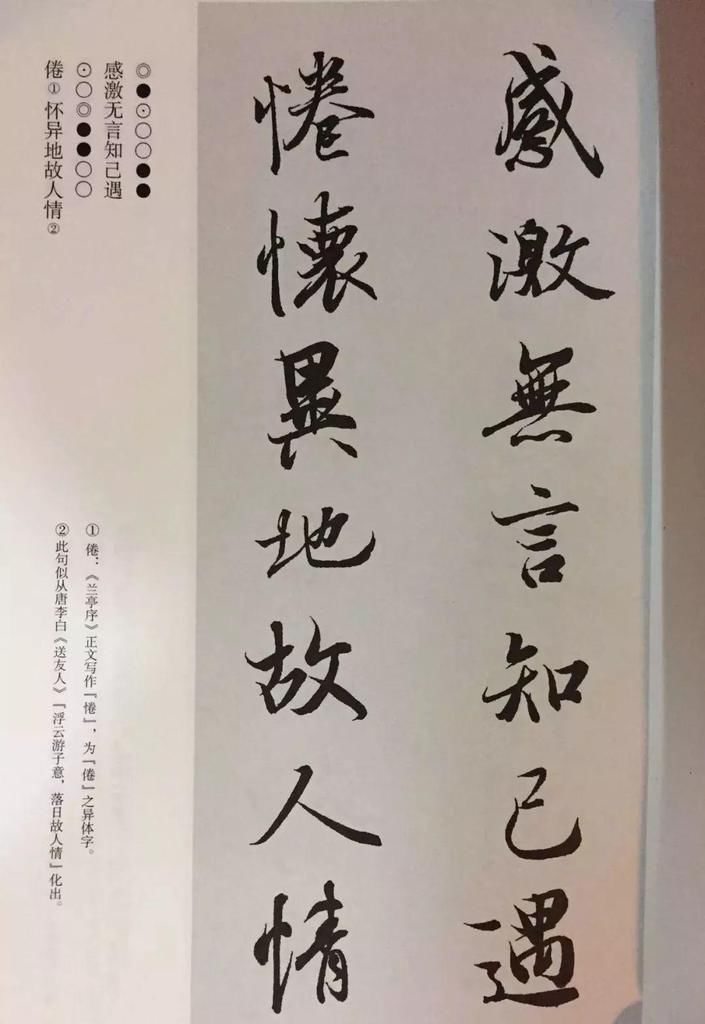 感激無言知己遇
惓懷異地故人情
◎●⊙○○●●
感激无言知己遇
⊙○◎●●○○
倦①怀异地故人情②
①倦：《兰亭序》正文写作「惓」，为「倦」之异体字。
②此句似从唐李白《送友人》「浮云游子意，落日故人情」化出。